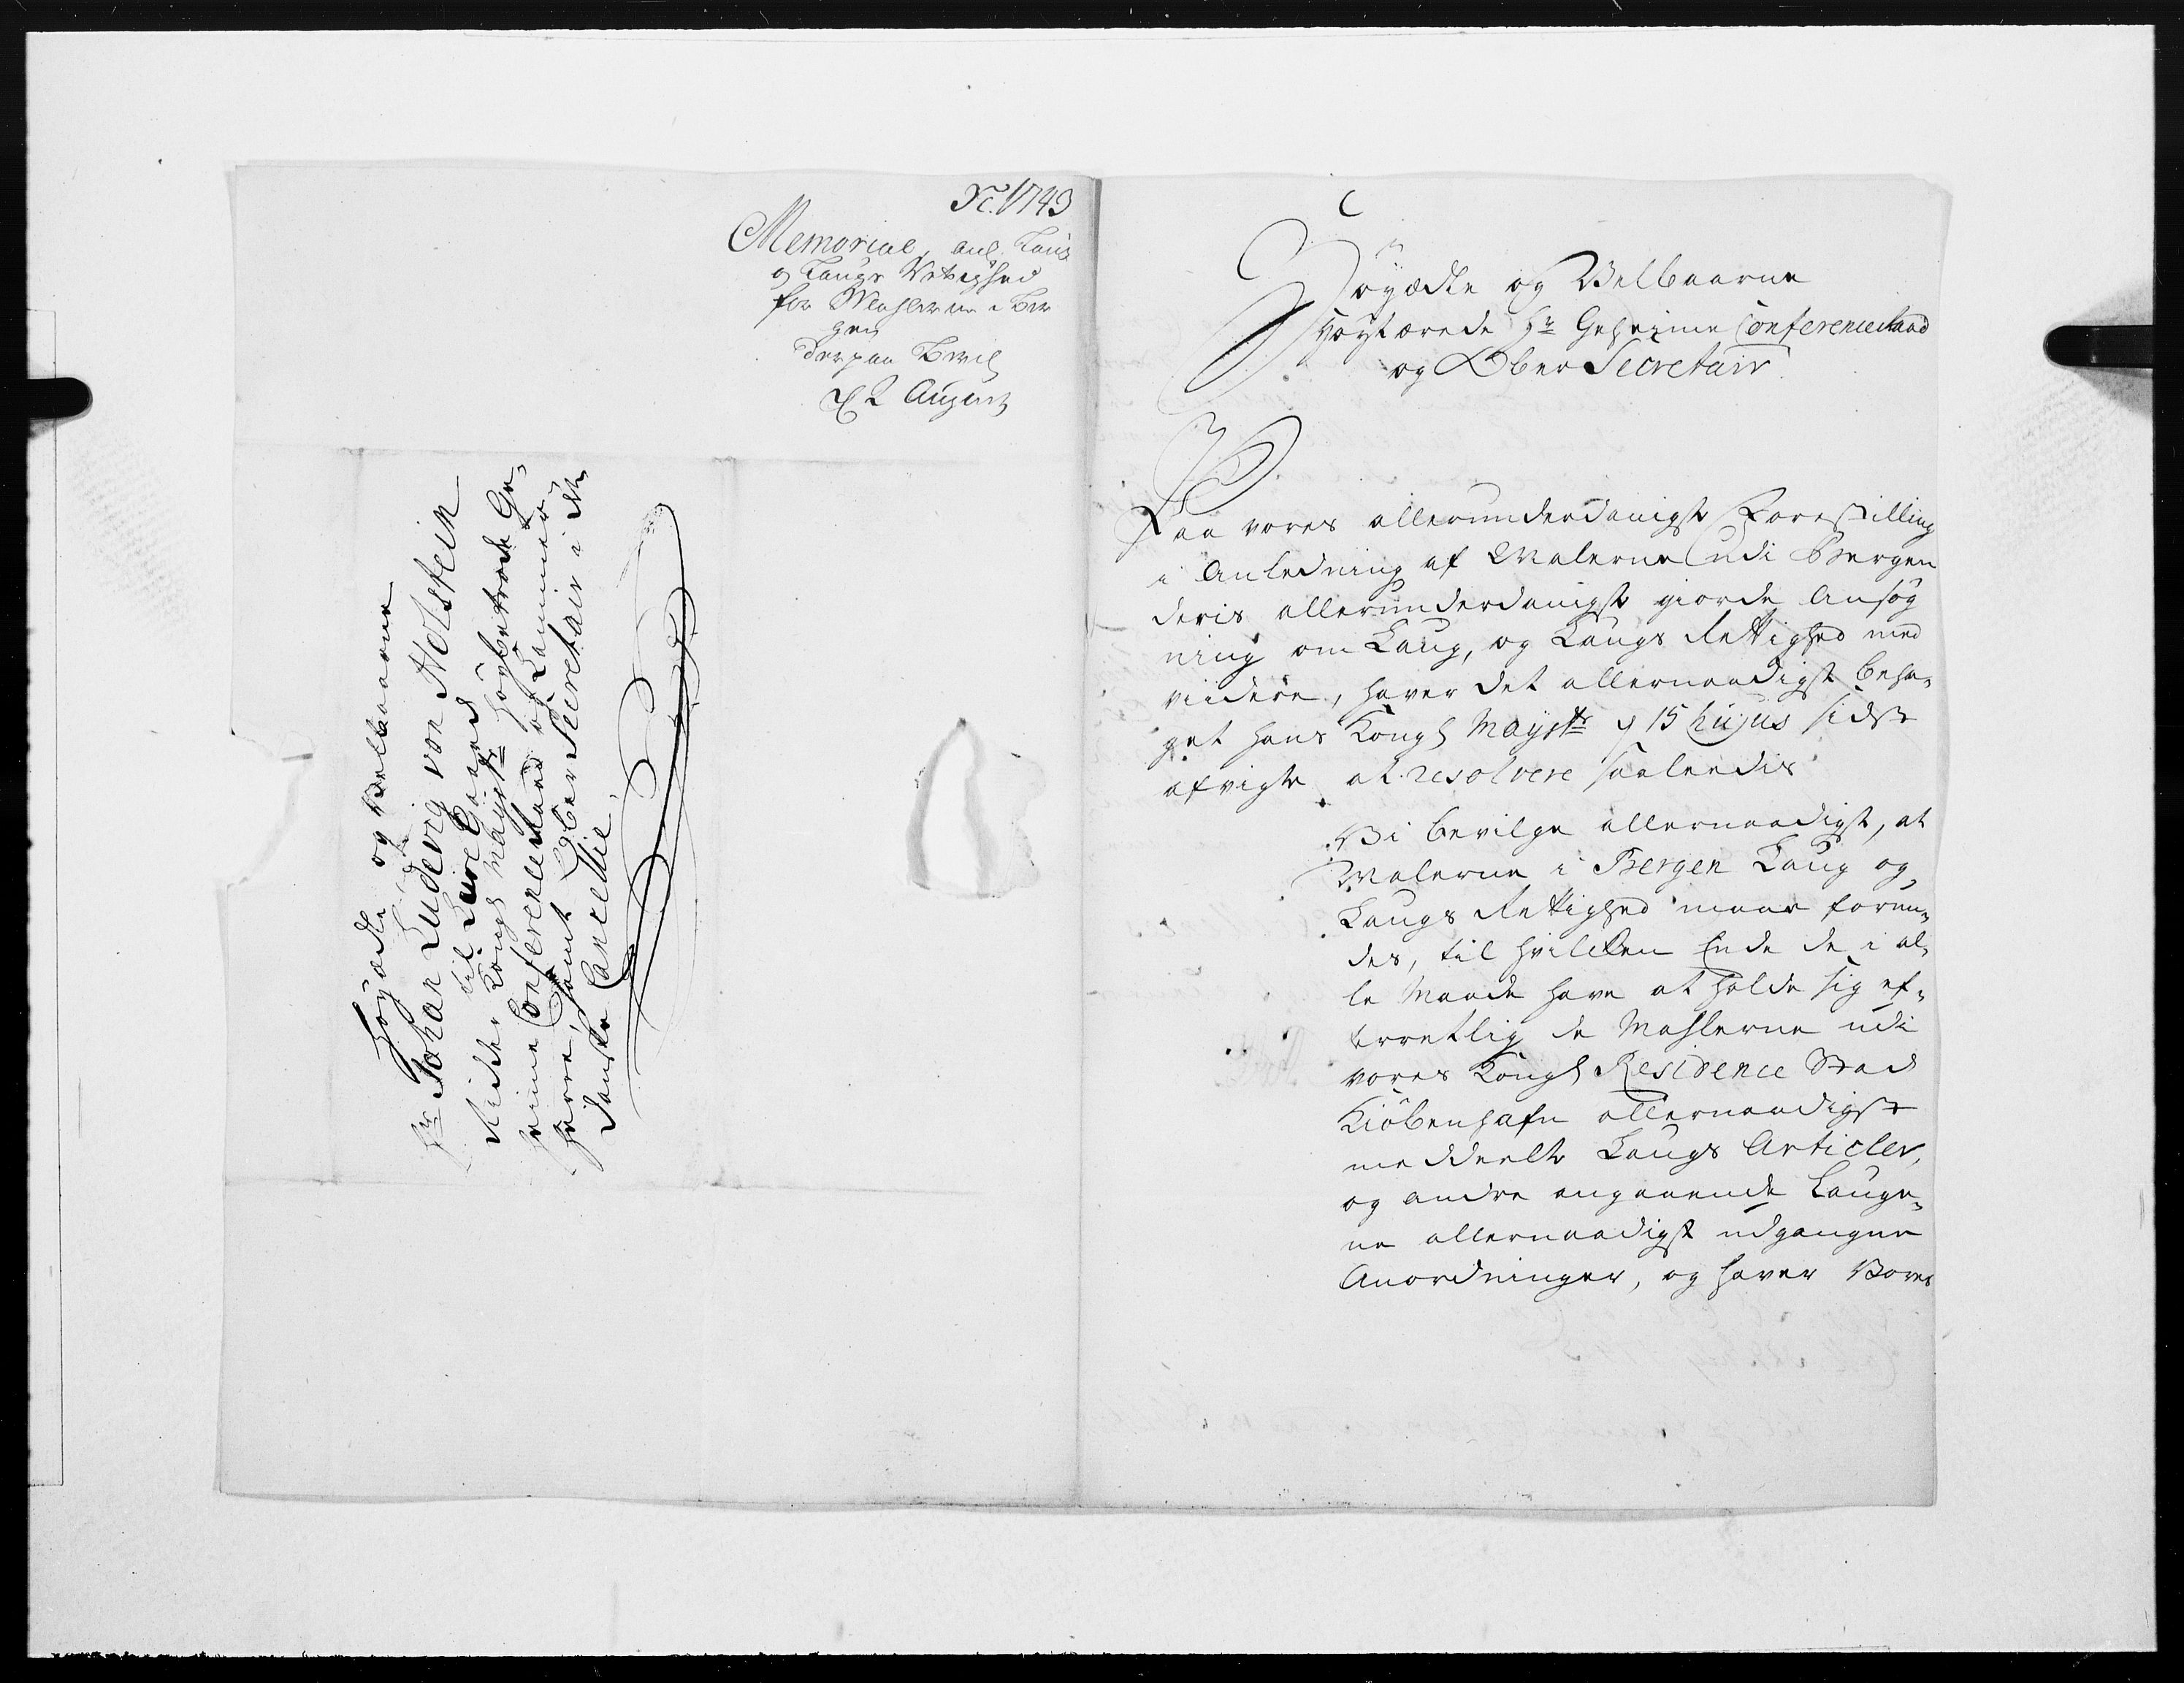 1743
Memorial, anl. Laug
og Laugs Rettighed
for Mahlerne i Ber
gen
derpaa Bevil
d 2 August
Höyædle og Velbaarne
Hr Johan Ludevig von Holstein
til Leire Gaard
Ridder Kongl Mayestts höybetroede Ge¬
heime Conference Raad og Cammer¬
herre, samt Ober Secretair i det
Danske Cancellie
Höyædle og Velbaarne
Höystærede Hr Geheime Conferenceraad
og Ober Secretair
Paa vores allerunderdanigste Forestilling
i Anledning af Malerne udi Bergen
deris allerunderdanigst giorde Ansøg
ning om Laug, og Laugs Rettighed med
viidere, haver det allernaadigst beha¬
get Hans Kongl Mayestt d 15 hujus sidst
afvigte at resolvere saaleedis
Vi bevilge allernaadigst, at
Malerne i Bergen Laug og
Laugs Rettighed maae forun¬
des, til hvilcken Ende de i al¬
le Maade have at holde sig ef¬
terretlig de Mahlerne udi
vores Kongl Residence Stad
Kiöbenhafn allernaadigst
meddeelte Laugs Articler,
og andre angaaende Lauge¬
ne allernaadigst udgangne
Anordninger, og haver Vores